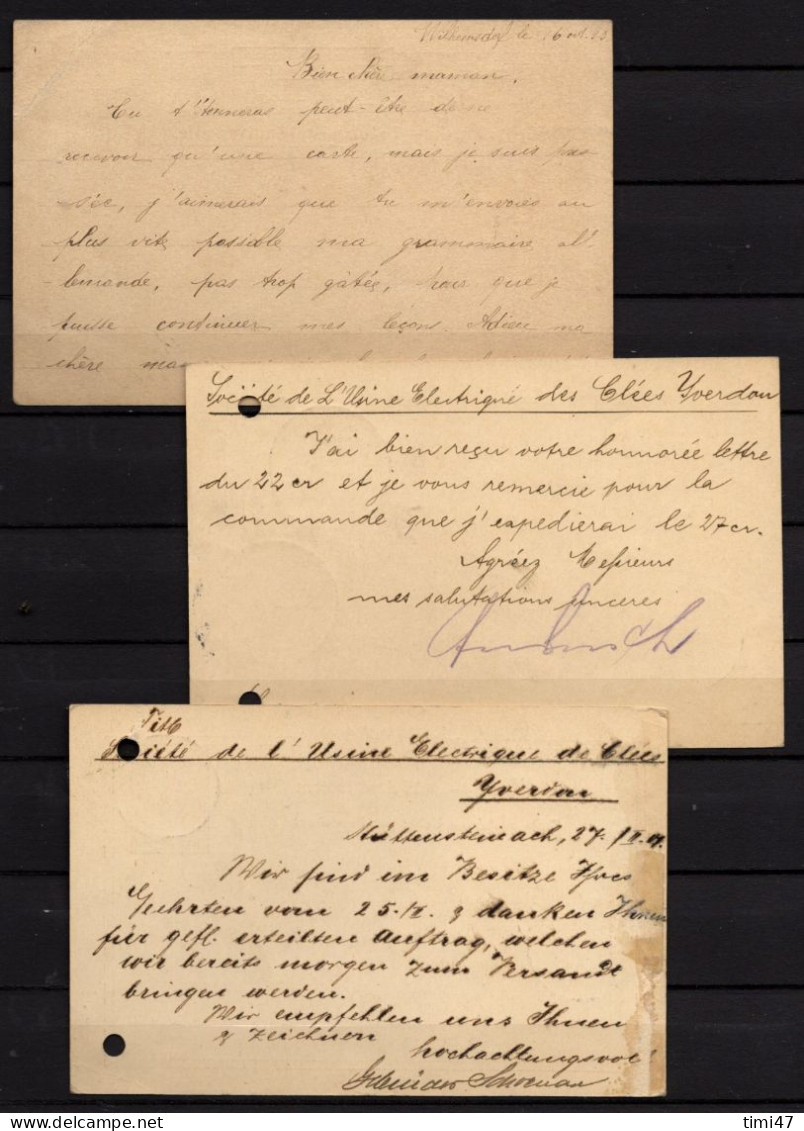 le 16 oct. 93
Bien chère maman,
Tu t'étonneras peut-être de ne
recevoir qu'une carte, mais je suis pas
séc, j'aimerais que tu m'envoies au
plus vite possible ma grammaire al-
lemande, pas trop gâtée, pour que je
puisse continuer mes leçons. Adieu ma
chère
Société de L'Usine Electrique des Clées Yverdon
J'ai bien reçu votre honnorée lettre
du 22 cr et je vous remercie pour la
commande que j'expedierai le 27 cr.
Agréez Messieurs
mes salutations sinceres
Titl.
Société de l'Usine Electrique de Clées
Yverdon
Hüttensteinach, 27. II. 01.
Wir sind im Besitze Ihres
Geehrten vom 25. II. & danken Ihnen
für gefl. erteilten Auftrag, welchen
wir bereits morgen zum Versandt
bringen werden.
Wir empfehlen uns Ihnen
& zeichnen
hochachtungsvoll
Gebrüder Schoenau
timi47